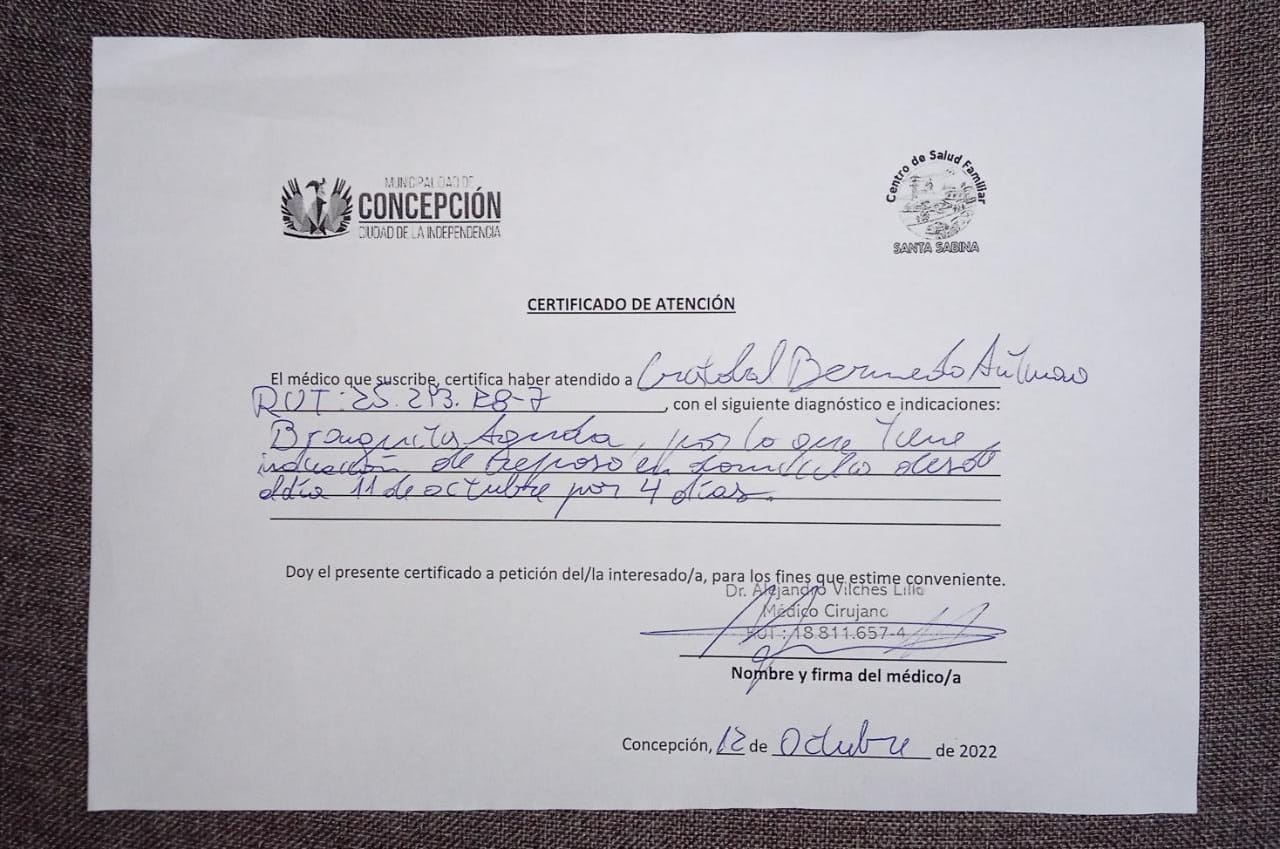 MUNICIPALIDAD DE
CONCEPCIÓN
CIUDAD DE LA INDEPENDENCIA
Centro de Salud Familiar
SANTA SABINA
CERTIFICADO DE ATENCIÓN
El médico que suscribe, certifica haber atendido a Cristobal Bermedo
RUT: , con el siguiente diagnóstico e indicaciones:
Bronquitis Aguda, por lo que tiene
indicación de reposo en domicilio desde
el día 11 de octubre por 4 días.
Doy el presente certificado a petición del/la interesado/a, para los fines que estime conveniente.
Dr. Alejandro Vilches Lillo
Médico Cirujano
RUT: 18.811.657-4
Nombre y firma del médico/a
Concepción, 12 de Octubre de 2022